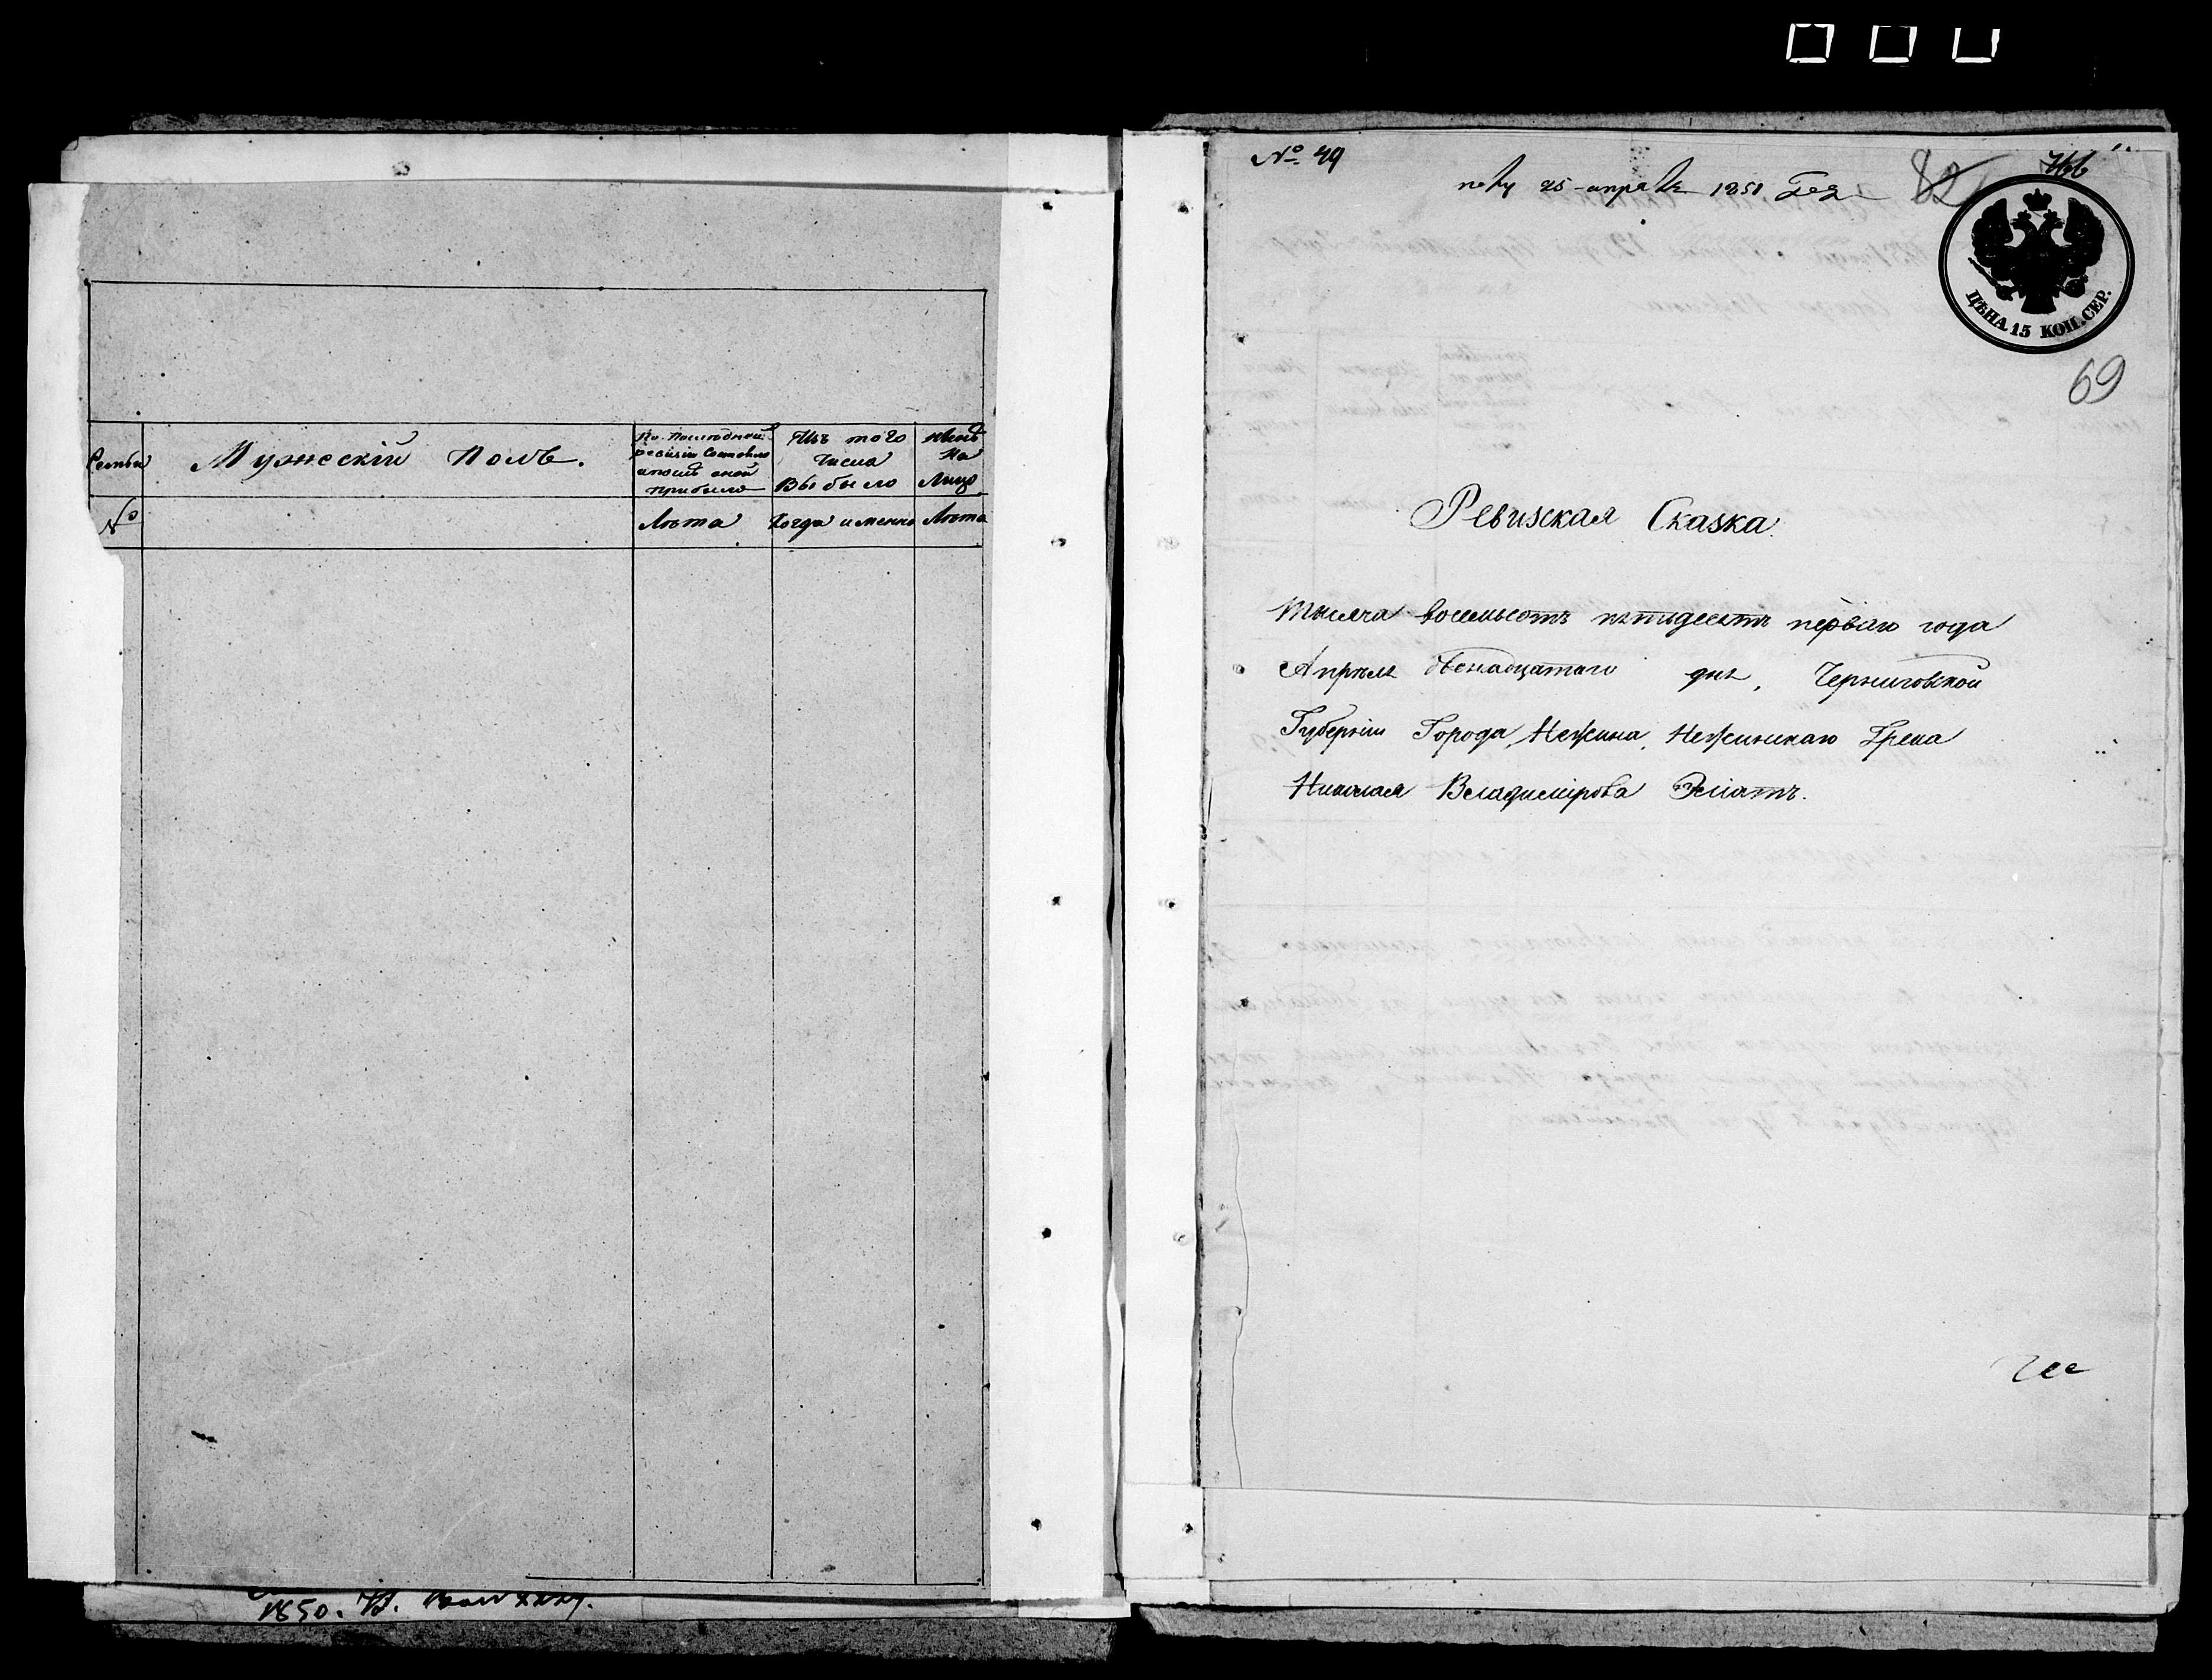 Семьи
Мужескій Полъ.
По последней
ревизіи Состояло
и послѣ оной
прибыло
Изъ того
Числа
Выбыло
нынѣ
На
Лицо
№
Лѣта
Когда именно
Лѣта
1850.
№ 49
25 апреля 1851
82
ЦѢНА 15 КОП. СЕР.
69
Ревизская Сказка.
Тысяча восемьсотъ пятьдесятъ перваго года
Апрѣля двенадцатаго дня, Черниговской
Губерніи Города Нежина, Нежинскаго Грека
Николая Владимірова